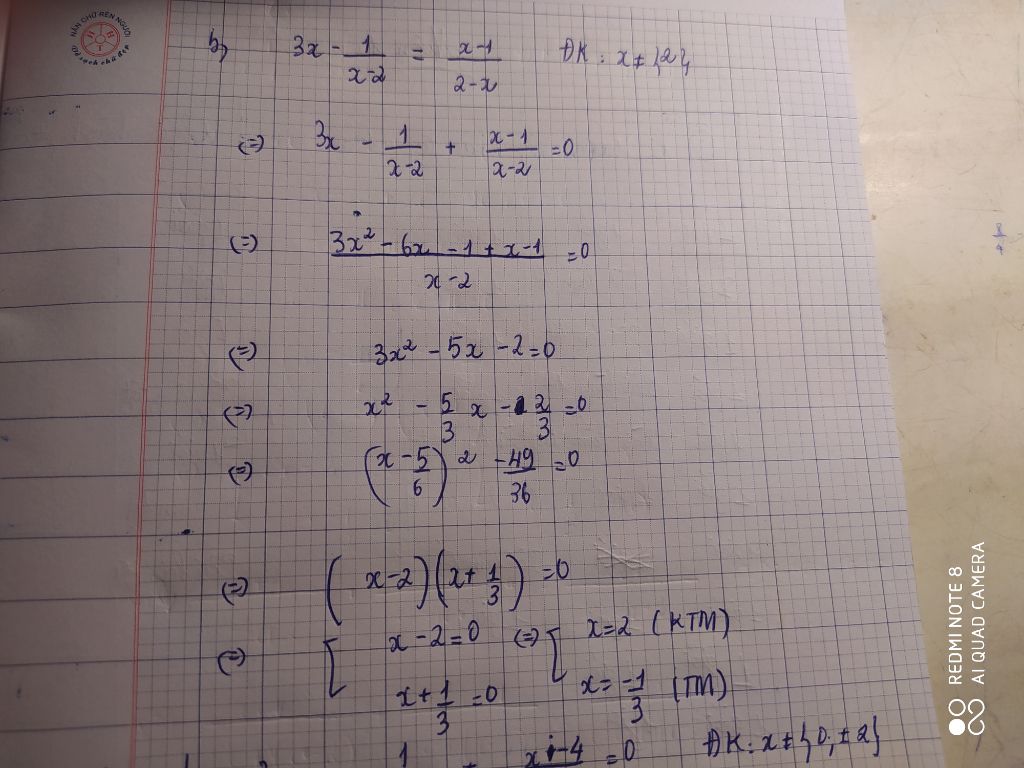 NẮN CHỮ RÈN NGƯỜI
b) 3x - 1/(x-2) = (x-1)/(2-x) ĐK: x ≠ {2}
(=) 3x - 1/(x-2) + (x-1)/(x-2) = 0
(=) (3x² - 6x - 1 + x - 1)/(x-2) = 0
(=) 3x² - 5x - 2 = 0
(=) x² - 5/3 x - 2/3 = 0
(=) (x - 5/6)² - 49/36 = 0
(=) (x - 2)(x + 1/3) = 0
(=) [ x - 2 = 0 (=) [ x = 2 (KTM)
x + 1/3 = 0 x = -1/3 (TM)
= 0 ĐK: x ≠ {0; ±2}
REDMI NOTE 8
AI QUAD CAMERA